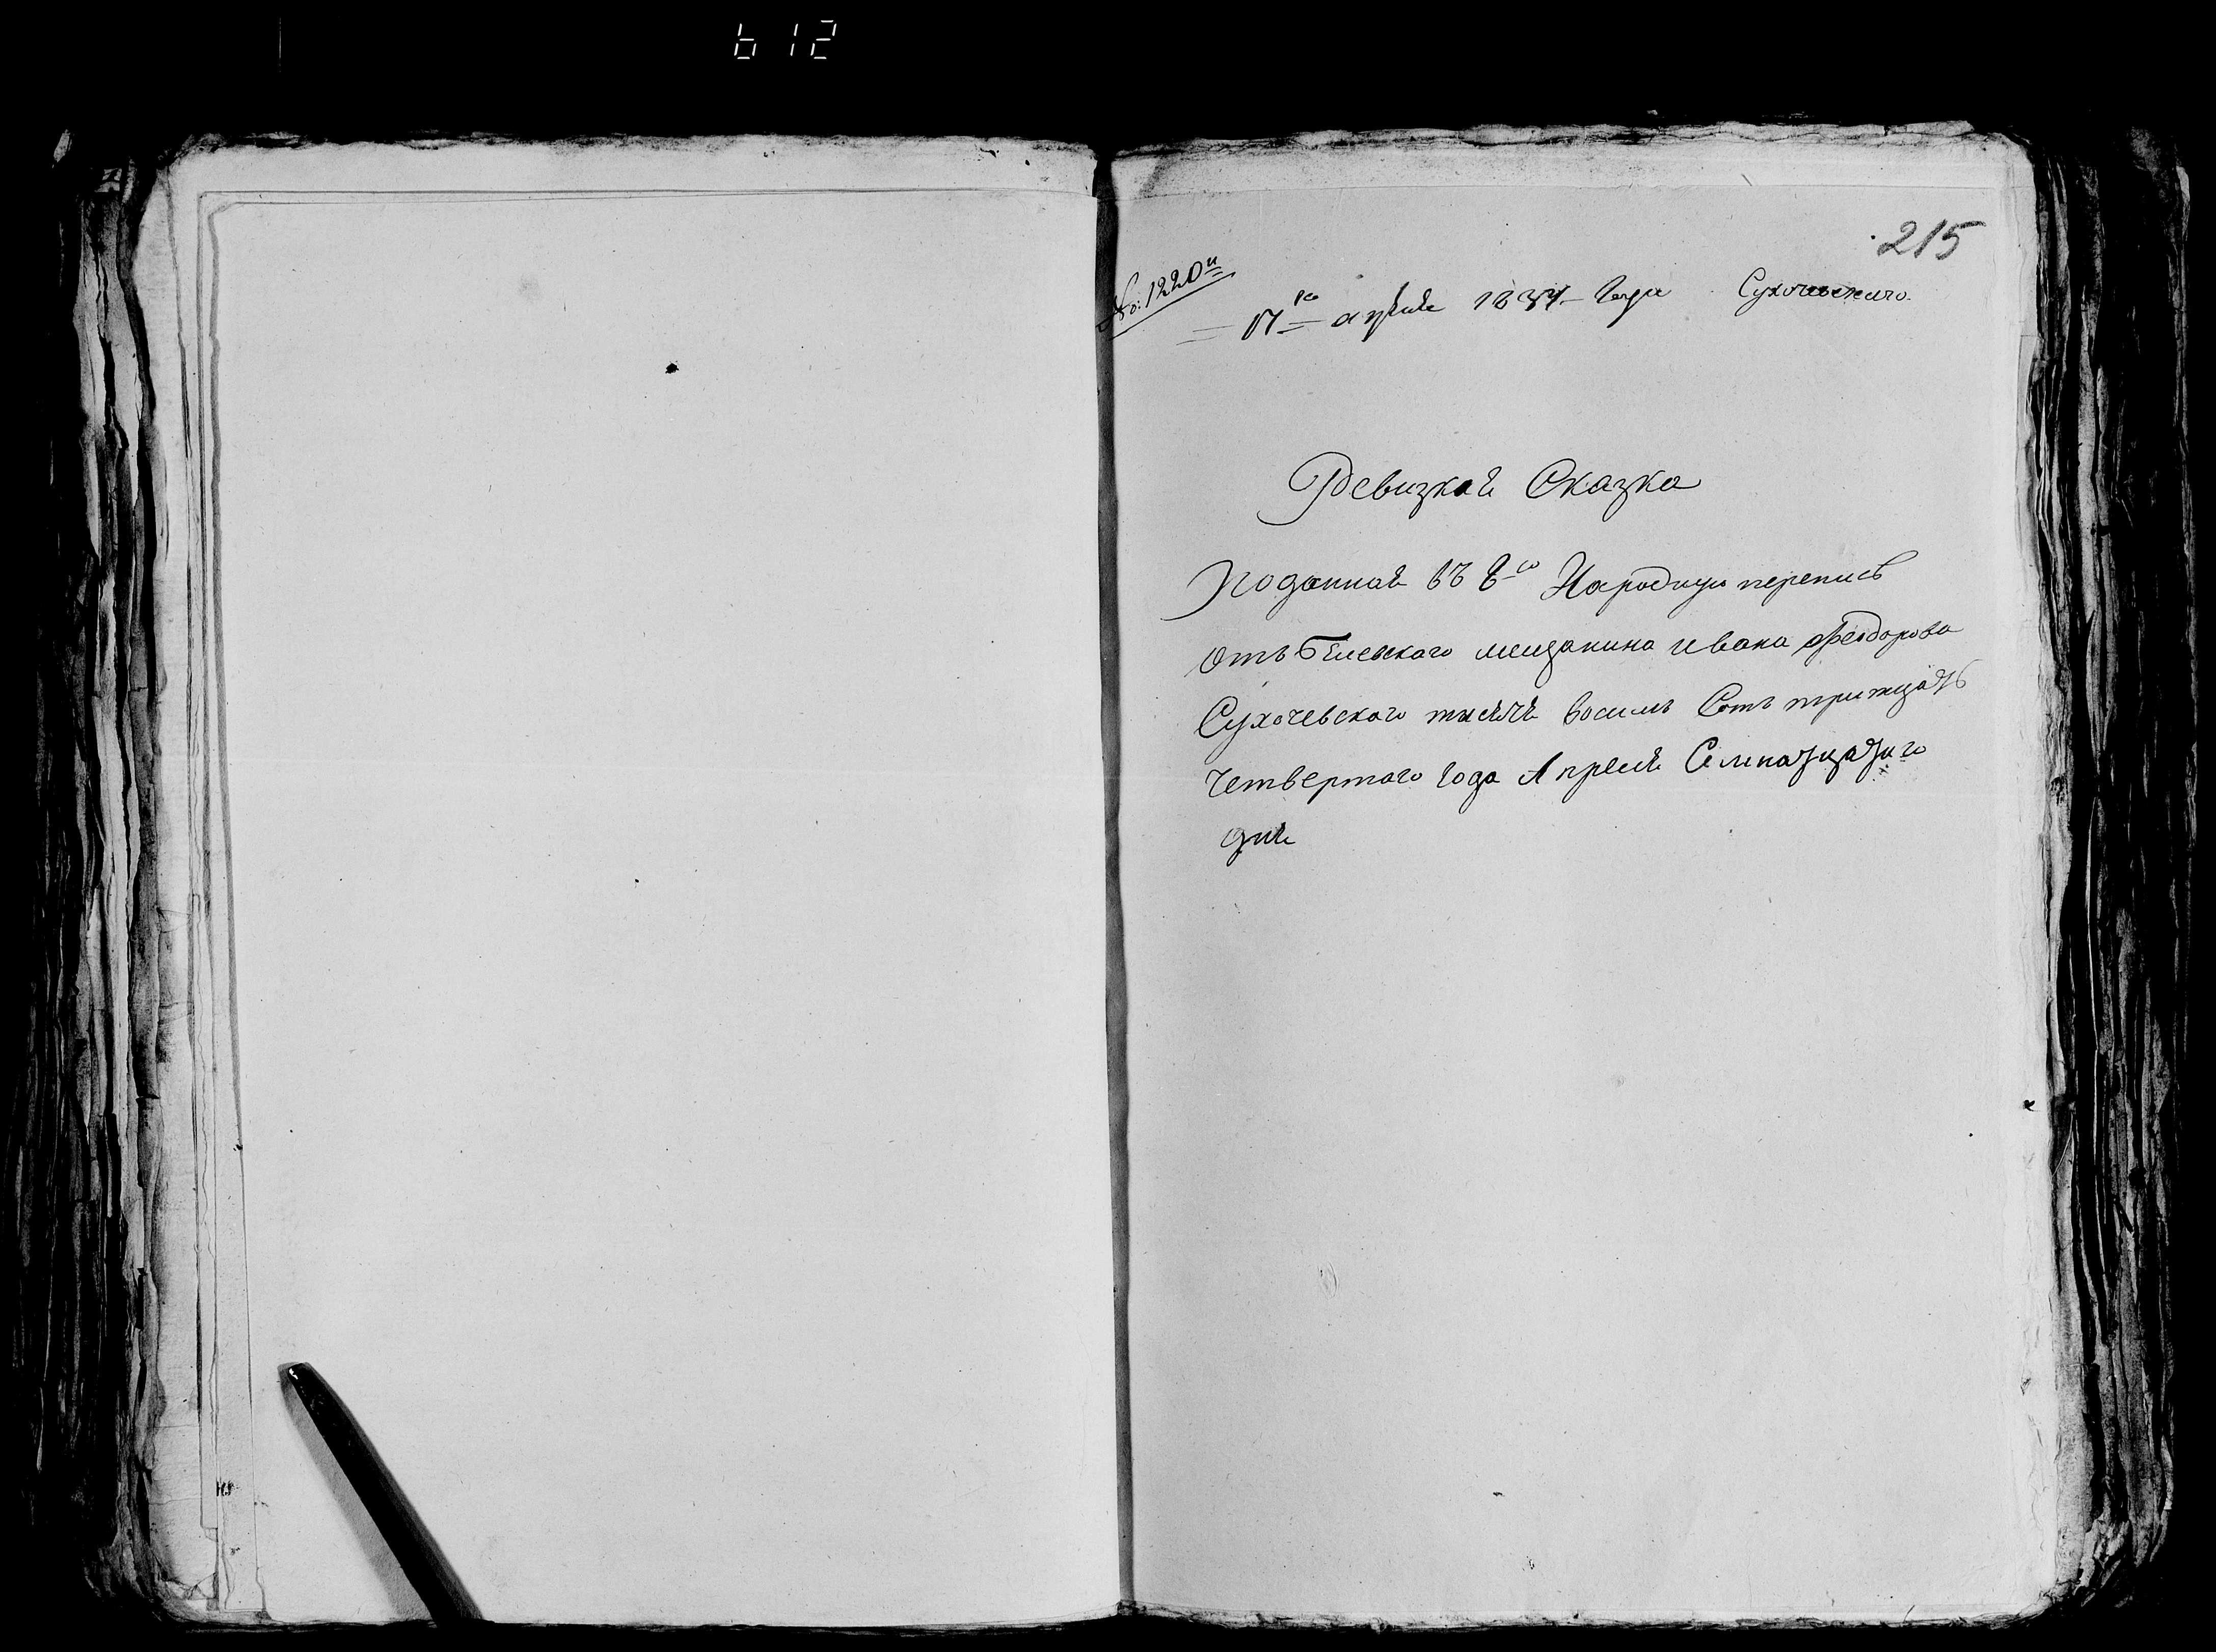 612
215
No: 1220й
17го апреля 1834 года Сухочевского.
Ревизкая Сказка
поданная въ 8ю Народную перепись
отъ Белевского мещанина Ивана Феодорова
Сухочевского тысяча восемь Сотъ тритцать
четвертого года Апреля Семнатцатого
дня